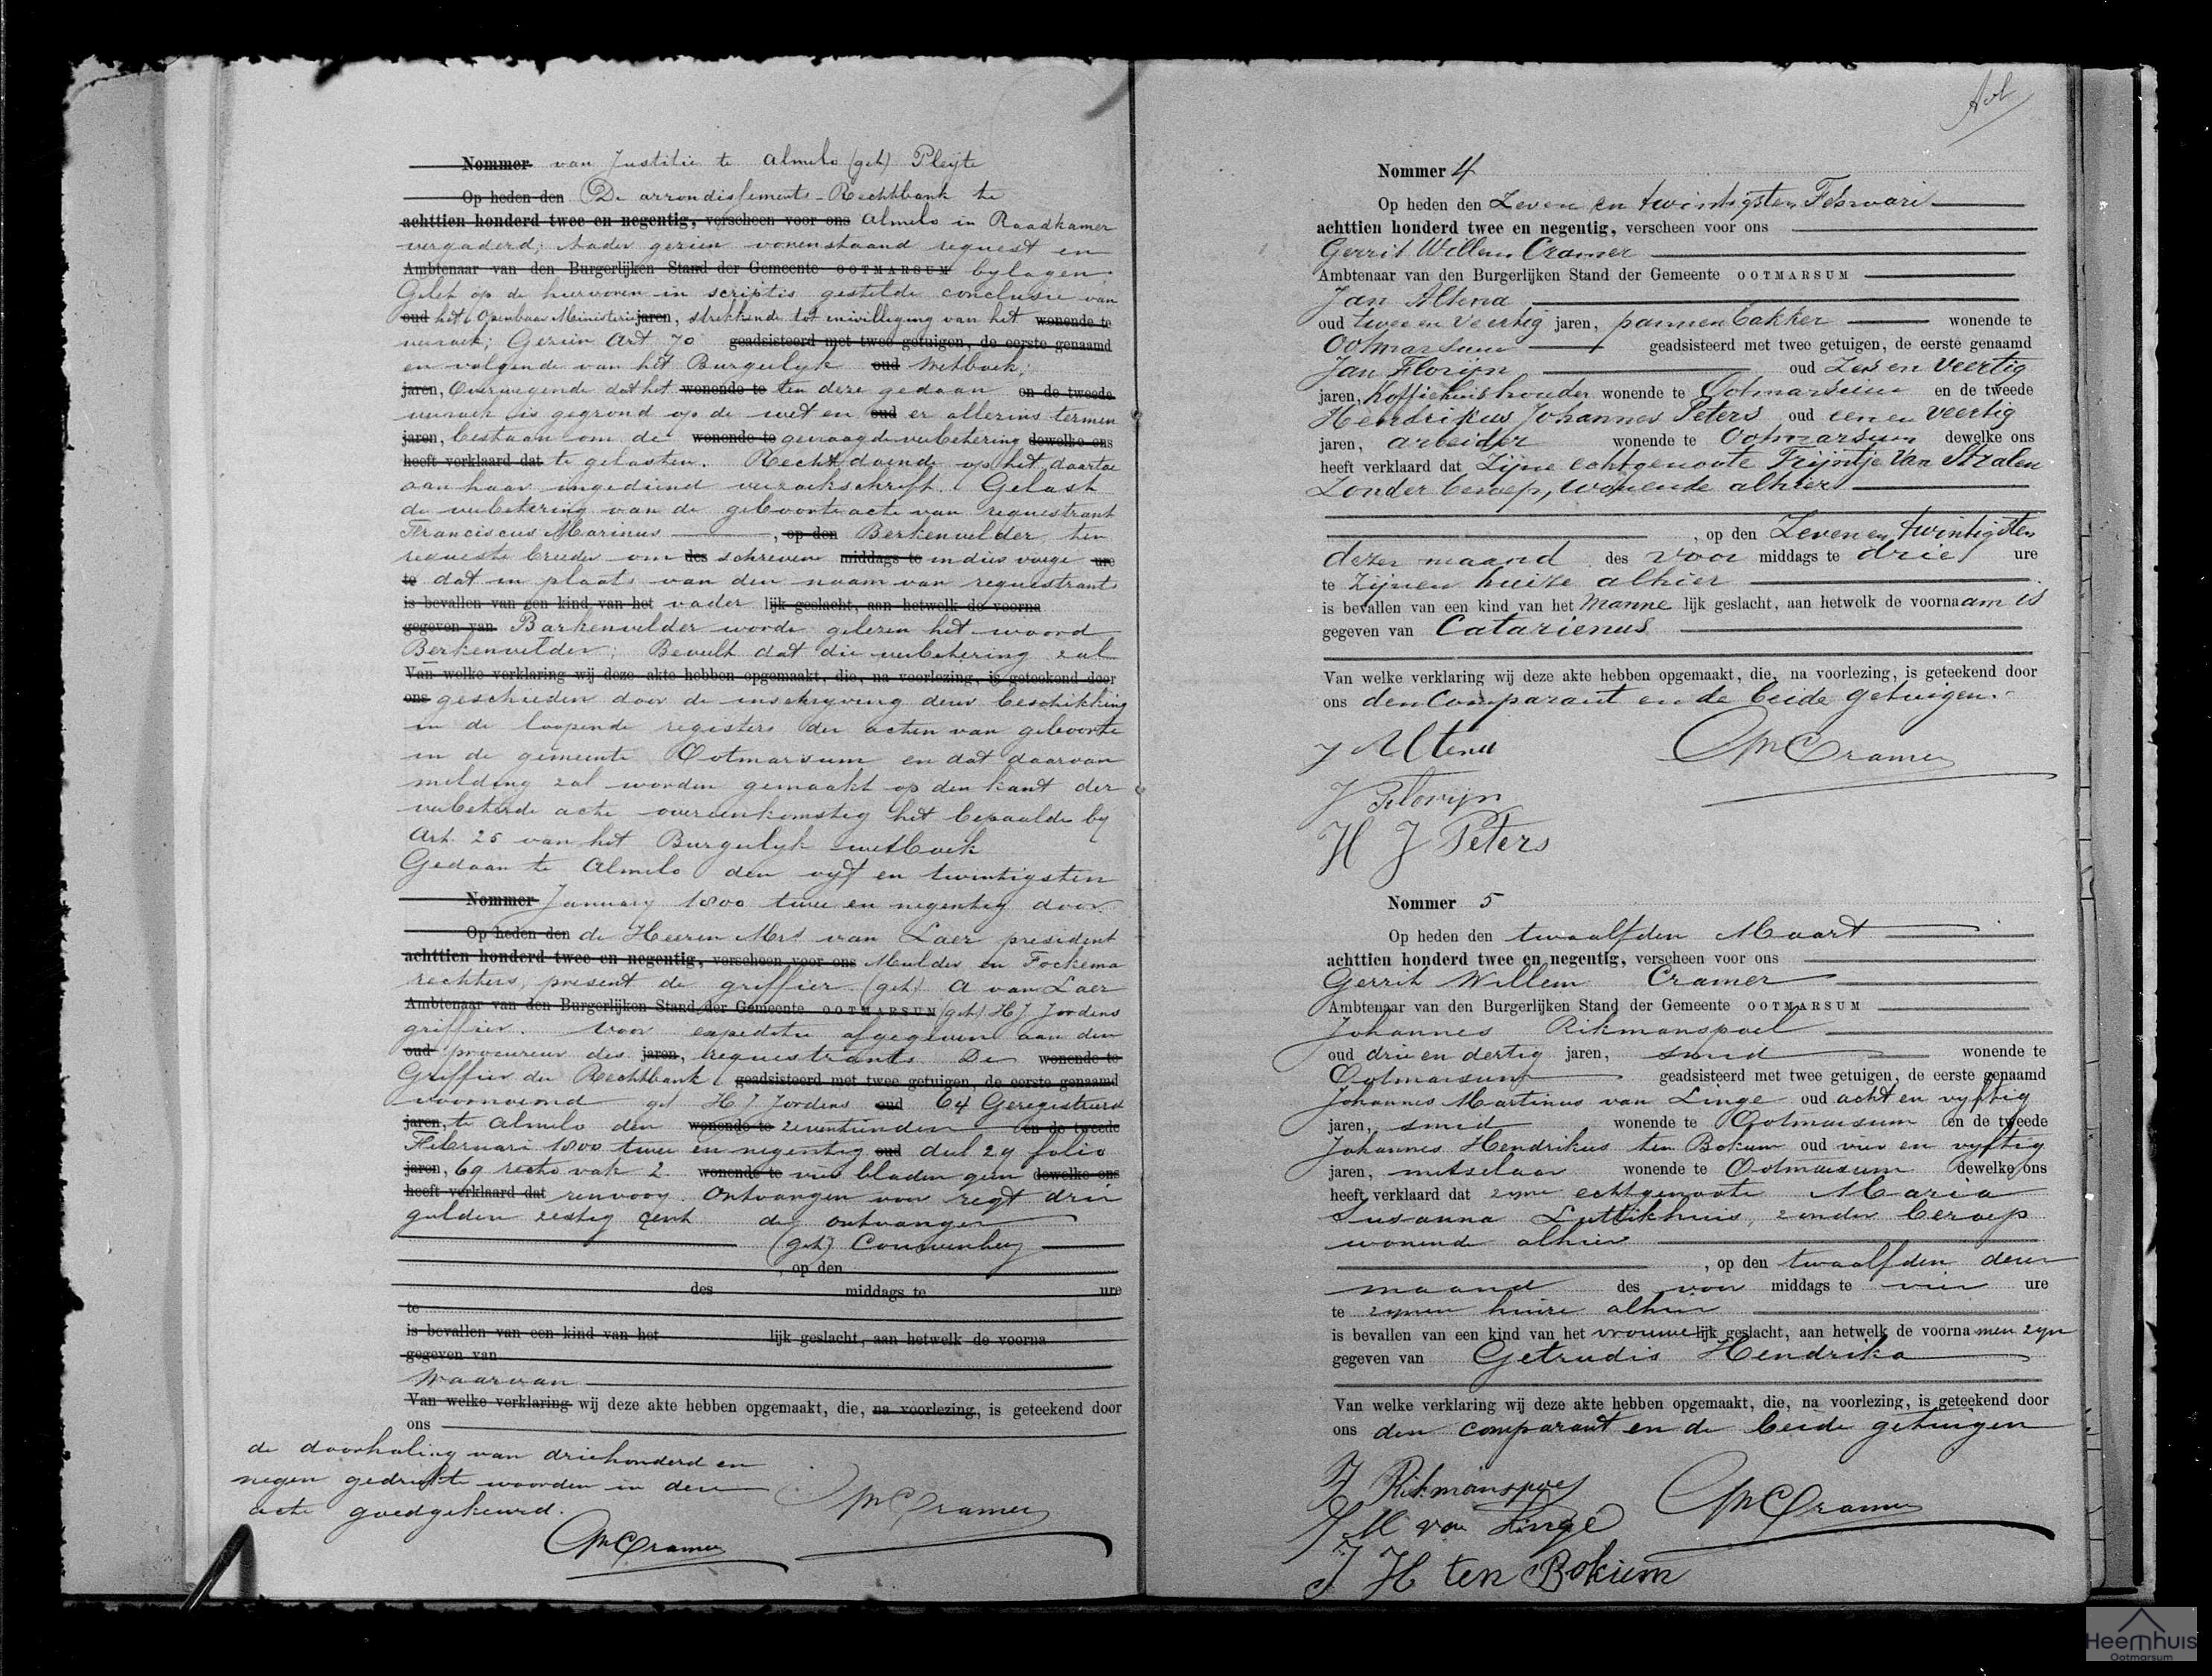 Nommer van Justitie te Almelo (get) Pleijte
Op heden den De arrondissements-Rechtbank te
achttien honderd twee en negentig, verscheen voor ons Almelo in Raadkamer
vergaderd; Nader gezien vorenstaand request en
Ambtenaar van den Burgerlijken Stand der Gemeente OOTMARSUM bylagen.
Gelet op de hiervoren in scriptis gestelde conclusie van
oud het Openbaar Ministerie jaren, strekkende tot inwilliging van het wonende te
verzoek; Gezien Art 70 geadsisteerd met twee getuigen, de eerste genaamd
en volgende van het Burgerlyk oud Wetboek;
jaren, Overwegende dat het wonende te ten deze gedaan en de tweede
verzoek is gegrond op de wet en oud er allezins termen
jaren, bestaan om de wonende te gevraagde verbetering dewelke ons
heeft verklaard dat te gelasten. Recht doende op het daartoe
aan haar ingediend verzoekschrift. Gelast
de verbetering van de geboorteacte van requestrant
Franciscus Marinus , op den Berkenvelder, ten
requeste breeder om des schreven middags te in dier voege ure
te dat in plaats van den naam van requestrants
is bevallen van een kind van het vader lijk geslacht, aan hetwelk de voorna
gegeven van Barkenvelder worde gelezen het woord
Berkenvelder; Beveelt dat die verbetering zal
Van welke verklaring wij deze akte hebben opgemaakt, die, na voorlezing, is geteekend door
ons geschieden door de inschryving dezer beschikking
in de loopende registers der acten van geboorte
in de gemeente Ootmarsum en dat daarvan
melding zal worden gemaakt op den kant der
verbeterde acte overeenkomstig het bepaalde by
Art. 25 van het Burgerlyk wetboek
Gedaan te Almelo den vyf en twintigsten
Nommer January 1800 twee en negentig door
Op heden den de Heeren Mrs van Laer president
achttien honderd twee en negentig, verscheen voor ons Mulder en Fockema
rechters, present de griffier (get) A van Laer
Ambtenaar van den Burgerlijken Stand der Gemeente OOTMARSUM (get). H J Jordens
griffier. Voor expeditie afgegeven aan den
oud procureur des jaren, requestrants De wonende te
Griffier der Rechtbank geadsisteerd met twee getuigen, de eerste genaamd
voornoemd get H J Jordens oud 64 Geregistreerd
jaren, te Almelo den wonende te zeventienden en de tweede
Februari 1800 twee en negentig oud deel 29 folio
jaren, 69 recto vak 2. wonende te vier bladen geen dewelke ons
heeft verklaard dat renvooy. Ontvangen voor regt drie
gulden zestig cent de ontvanger
(get) Couwenberg
, op den
des middags te ure
te
is bevallen van een kind van het lijk geslacht, aan hetwelk de voorna
gegeven van
Waarvan
Van welke verklaring wij deze akte hebben opgemaakt, die, na voorlezing, is geteekend door
ons
de doorhaling van driehonderd en
negen gedrukte woorden in deze
acte goedgekeurd.
GWCramer
GWCramer
Nommer 4
Op heden den Zeven en twintigsten Februari
achttien honderd twee en negentig, verscheen voor ons
Gerrit Willem Cramer
Ambtenaar van den Burgerlijken Stand der Gemeente OOTMARSUM
Jan Altena
oud twee en Veertig jaren, pannenbakker wonende te
Ootmarsum geadsisteerd met twee getuigen, de eerste genaamd
Jan Florijn oud Zes en Veertig
jaren, Koffiehuishouder wonende te Ootmarsum en de tweede
Hendrikus Johannes Peters oud een en Veertig
jaren, arbeider wonende te Ootmarsum dewelke ons
heeft verklaard dat Zijne echtgenoote Trijntje Van Stralen
Zonder beroep, wonende alhier
, op den Zeven en twintigsten
dezer maand des Voor middags te drie ure
te Zijnen huize alhier
is bevallen van een kind van het Manne lijk geslacht, aan hetwelk de voornaam is
gegeven van Catarienus
Van welke verklaring wij deze akte hebben opgemaakt, die, na voorlezing, is geteekend door
ons den Comparant en de beide getuigen.
J Altena
GWCramer
J Florijn
H J Peters
Nommer 5
Op heden den twaalfden Maart
achttien honderd twee en negentig, verscheen voor ons
Gerrit Willem Cramer
Ambtenaar van den Burgerlijken Stand der Gemeente OOTMARSUM
Johannes Rikmanspoel
oud drie en dertig jaren, smid wonende te
Ootmarsum geadsisteerd met twee getuigen, de eerste genaamd
Johannes Martinus van Linge oud acht en vyftig
jaren, smid wonende te Ootmarsum en de tweede
Johannes Hendrikus ten Bokum oud vier en vyftig
jaren, metselaar wonende te Ootmarsum dewelke ons
heeft verklaard dat zyne echtgenoote Maria
Susanna Luttikhuis, zonder beroep
wonende alhier
, op den twaalfden dezer
maand des voor middags te vier ure
te zynen huize alhier
is bevallen van een kind van het vrouwelijk geslacht, aan hetwelk de voorna men zyn
gegeven van Getrudis Hendrika
Van welke verklaring wij deze akte hebben opgemaakt, die, na voorlezing, is geteekend door
ons den comparant en de beide getuigen
J Rikmanspoel
GWCramer
J M van Linge
J H ten Bokum
Heemhuis
Ootmarsum